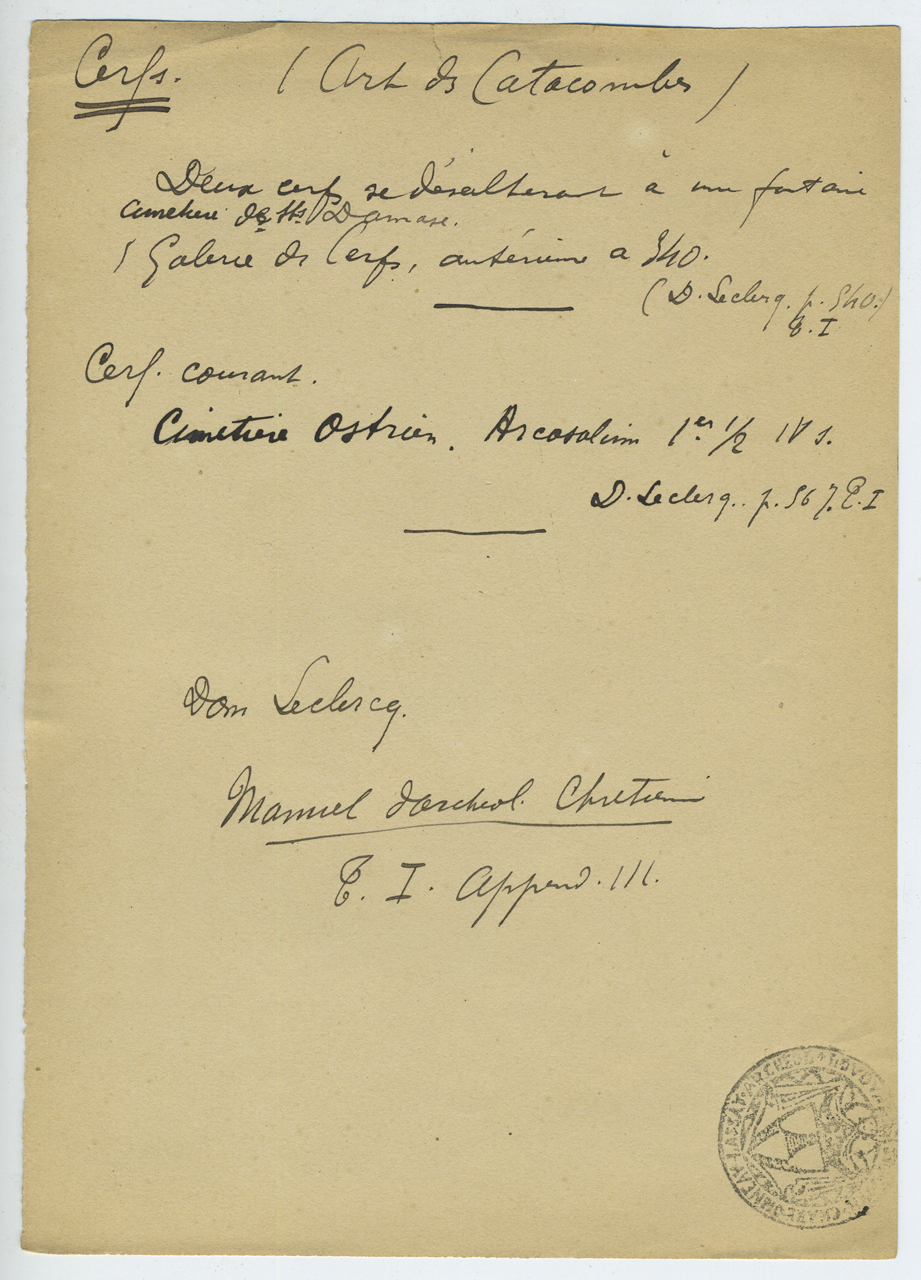 Cerfs. ( Art ds Catacombes )
Deux cerfs se désaltérant à une fontaine
Cimetiere Damase.
( Galerie ds Cerfs, antérieure a 340.
( D. Leclerq. p. 540.)
T. I
Cerf courant.
Cimetière Ostrien. Arcosolium 1er 1/2 IV s.
D. Leclerq.. p. 567. T. I
Dom Leclercq.
Manuel d'archeol. Chretienne
T. I. Append. III.